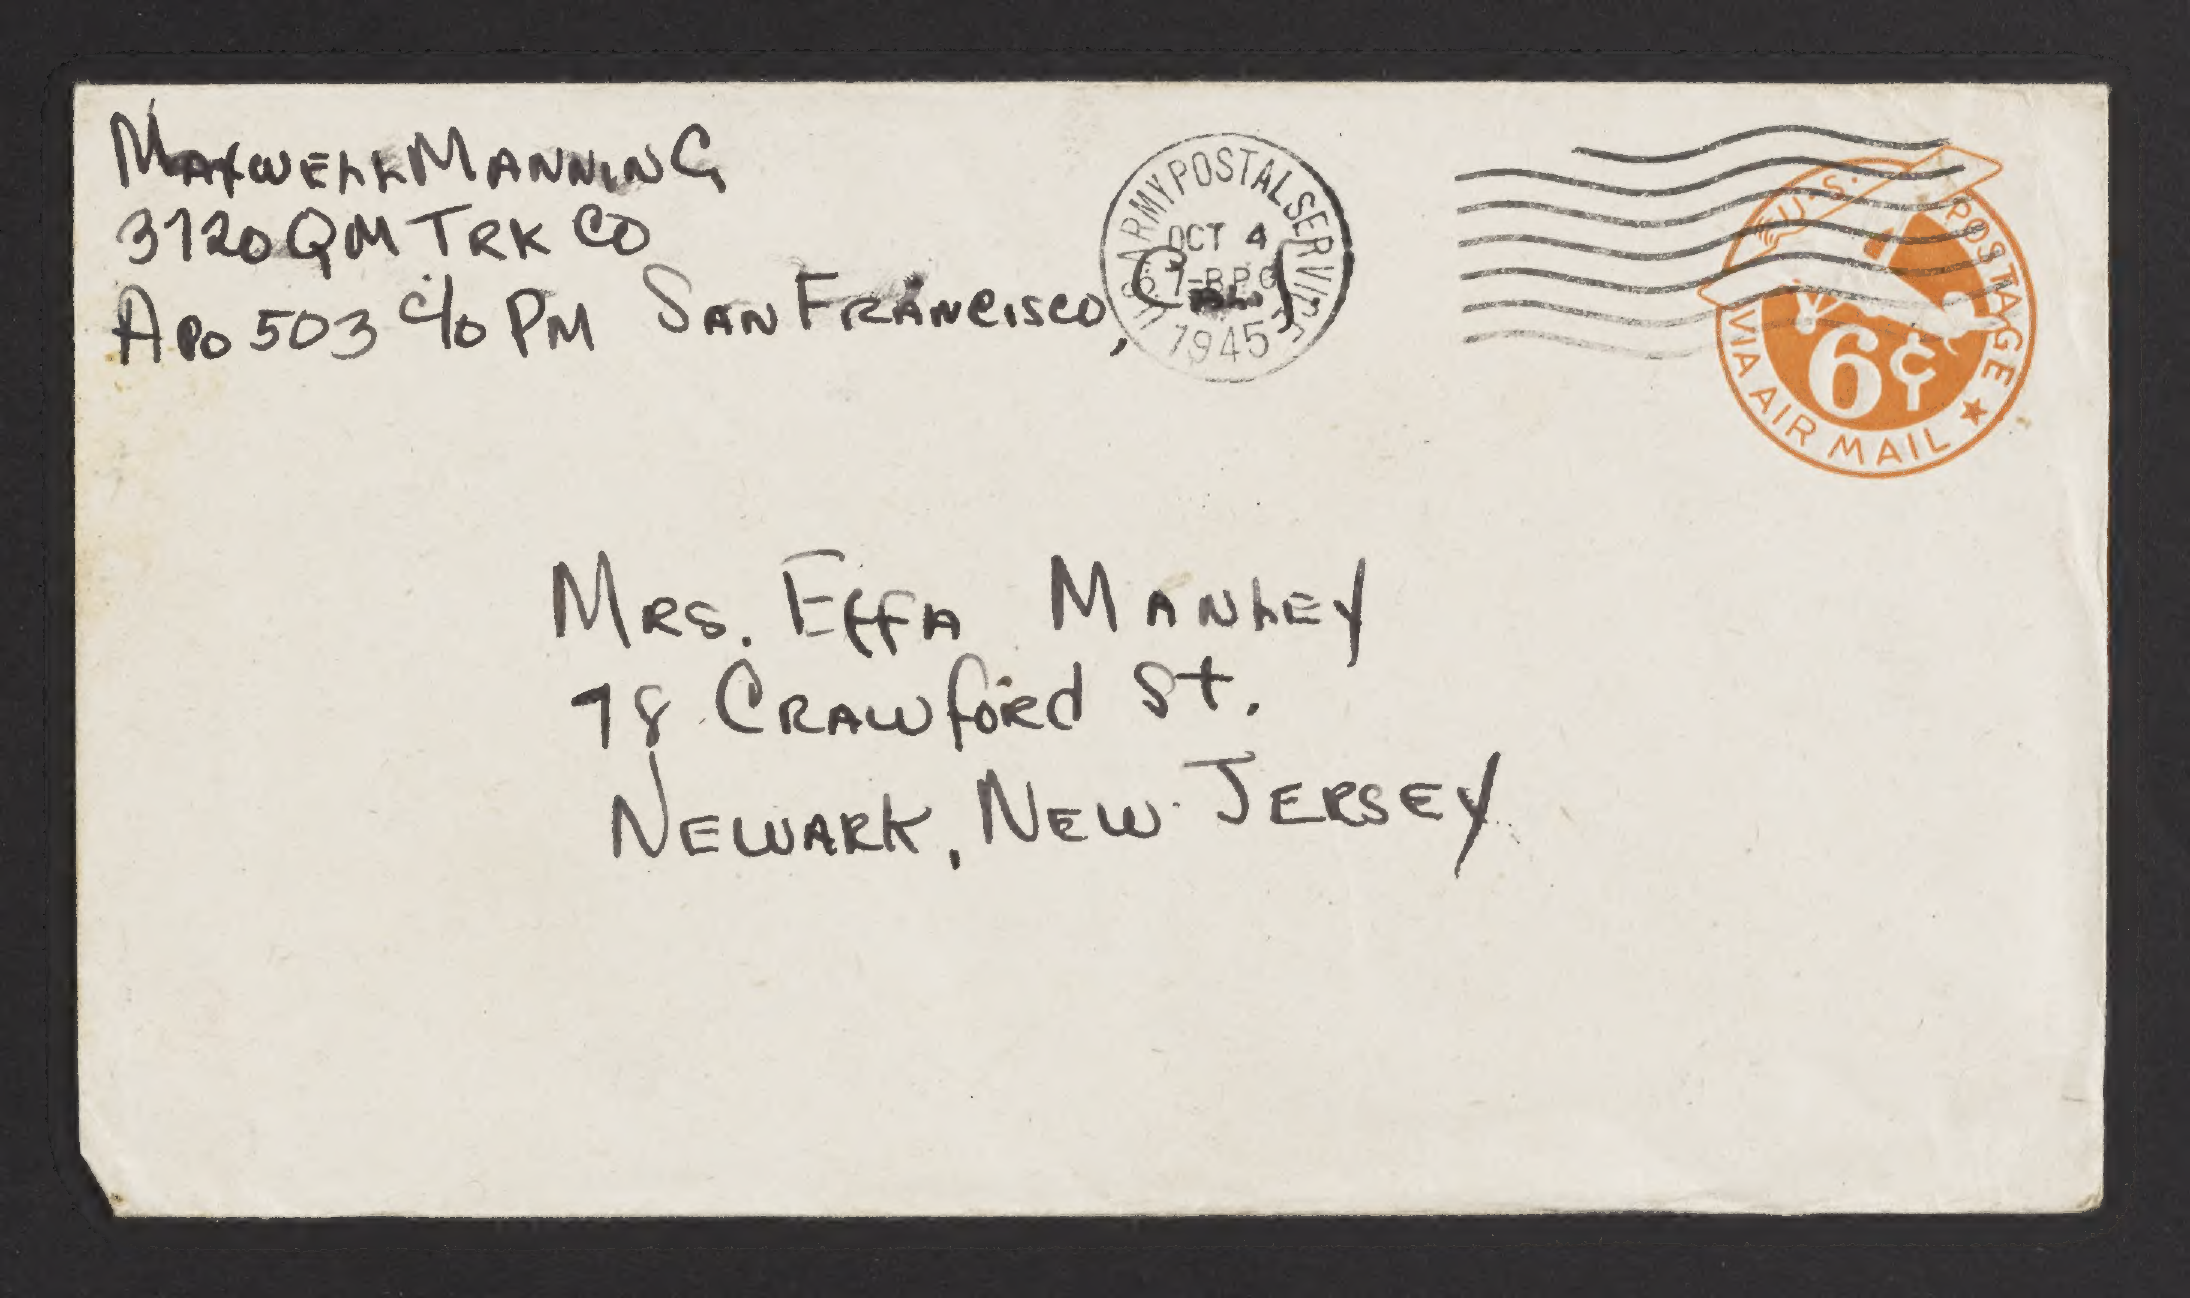 MAXWELL MANNING
3720 QM TRK CO
APO 503 c/o PM SAN FRANCISCO, CALIF.
U.S. ARMY POSTAL SERVICE
OCT 4
1945
U.S. POSTAGE
6¢
VIA AIR MAIL
MRS. EFFA MANLEY
78 CRAWfORd St.
NEWARK, NEW JERSEY